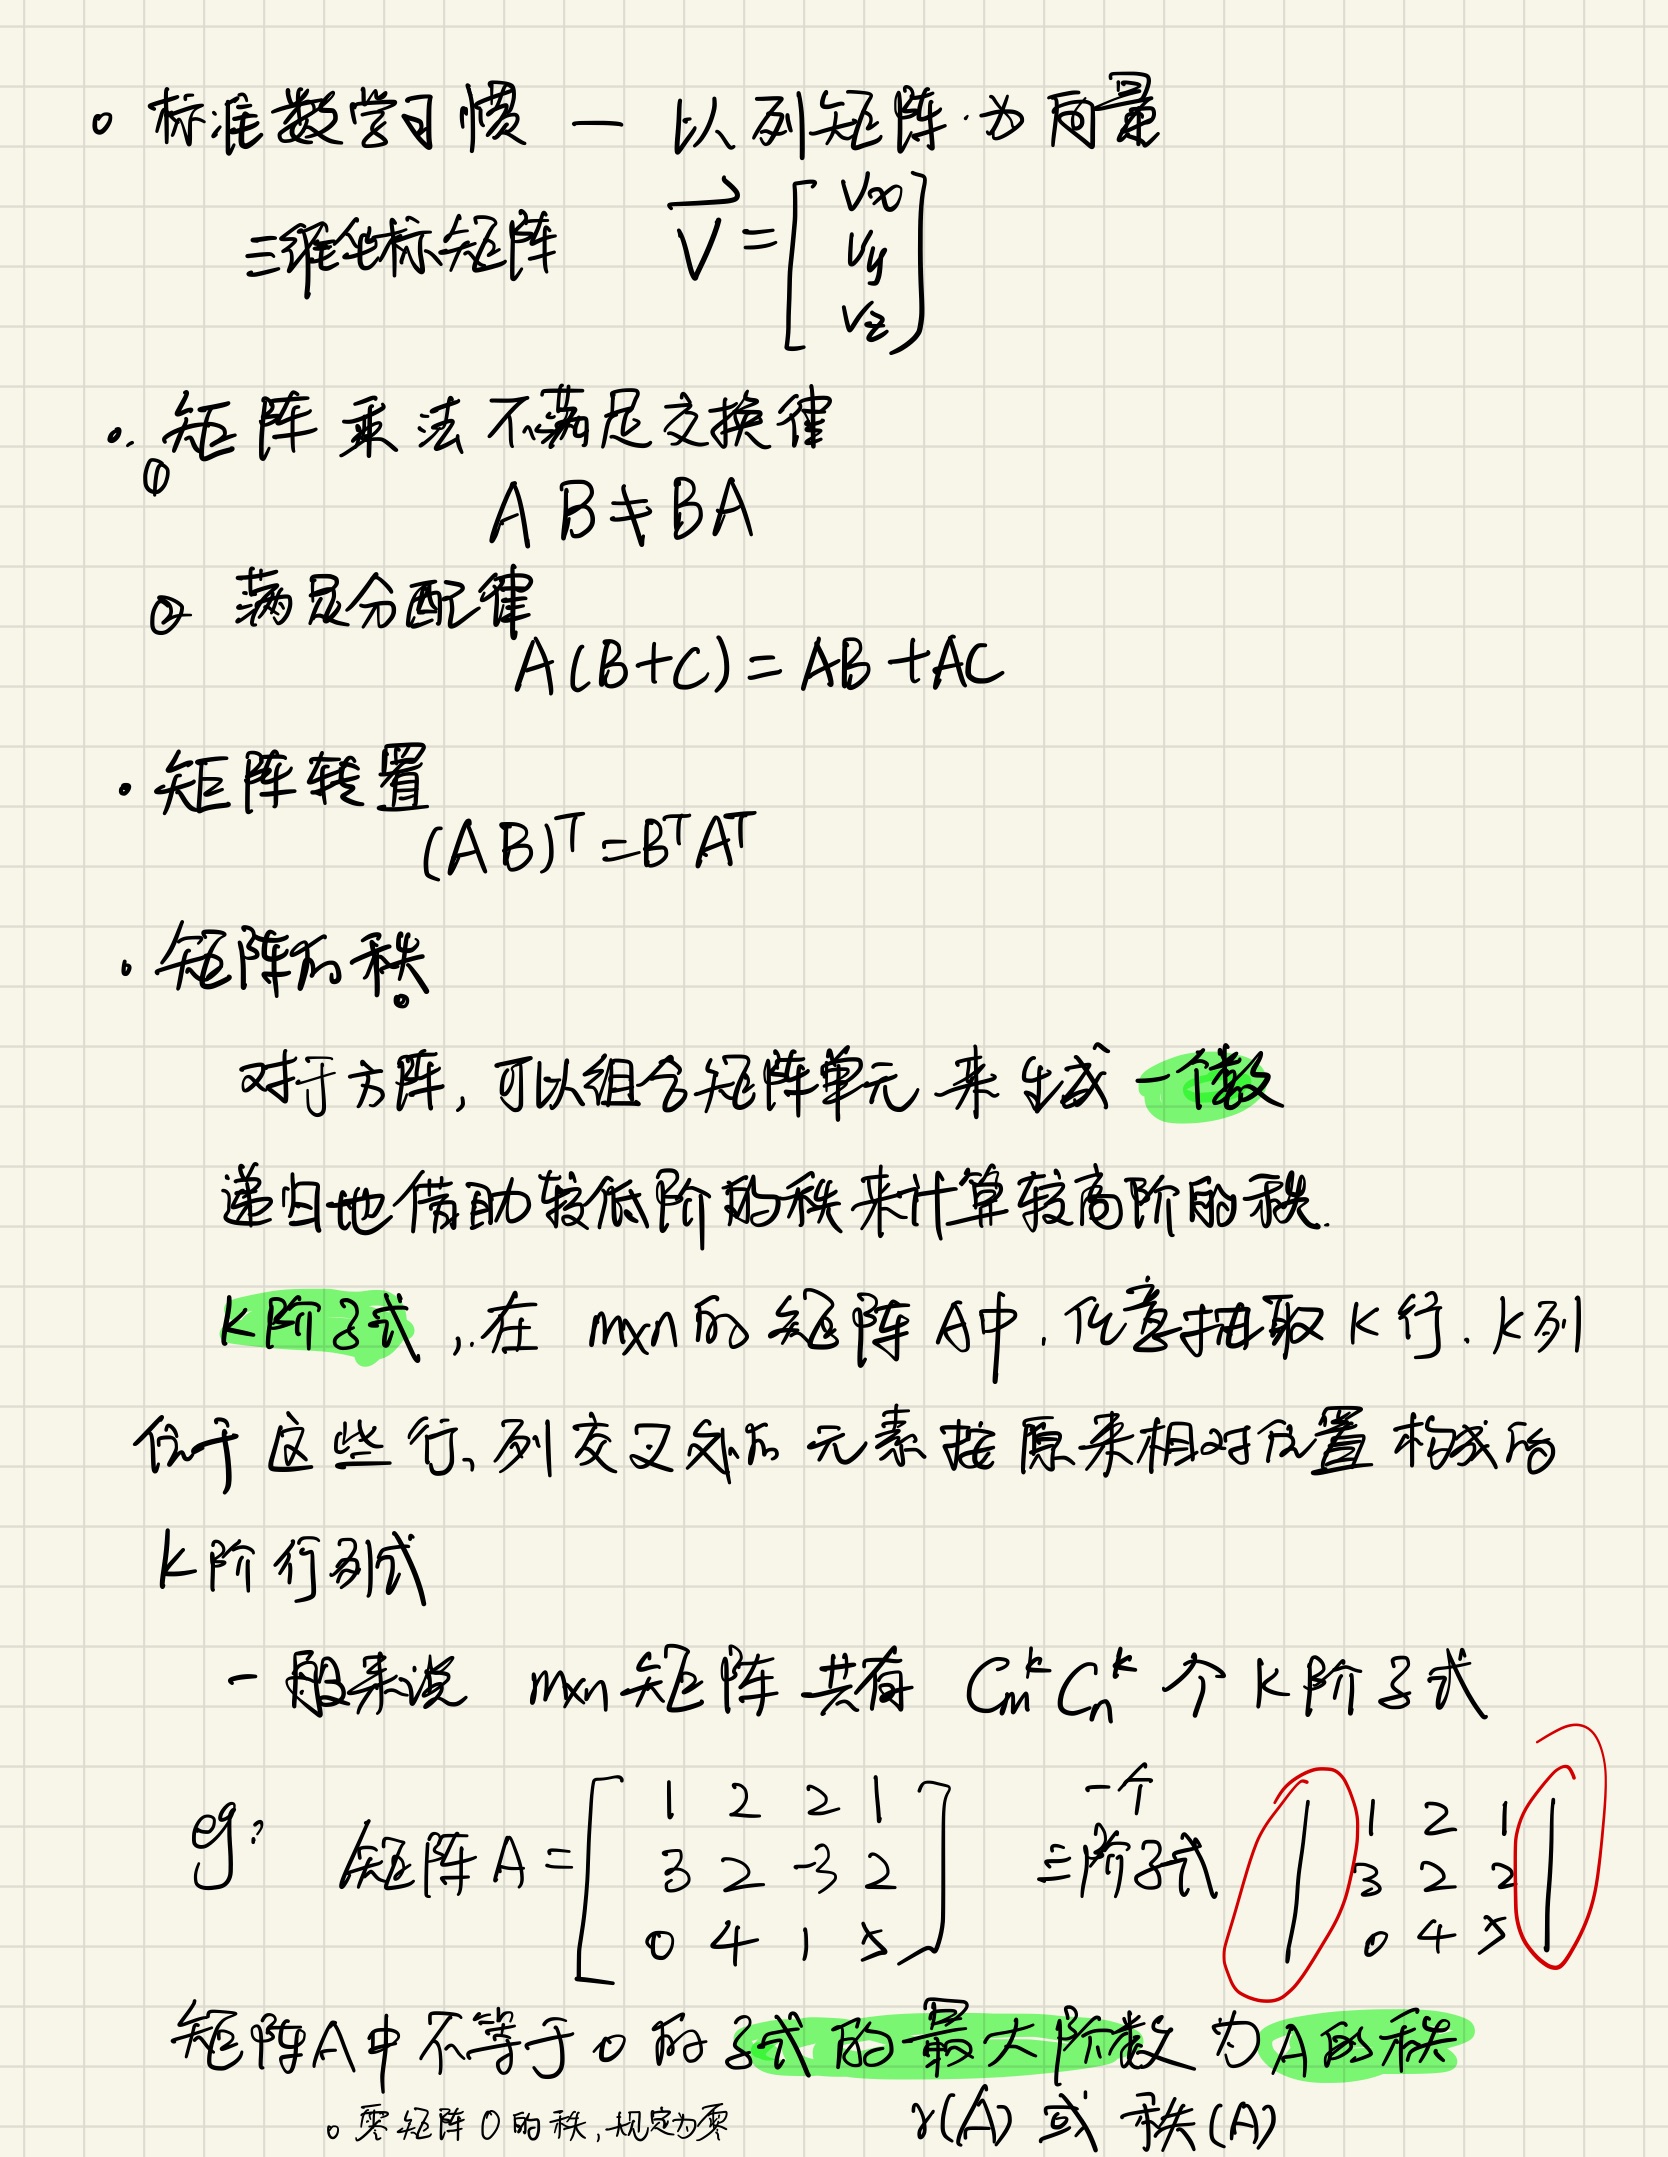 。标准数学习惯 — 以列矩阵为向量
三维坐标矩阵 V = [Vx Vy Vz]
·矩阵乘法不满足交换律
①
AB≠BA
② 满足分配律
A(B+C)=AB+AC
·矩阵转置
(AB)ᵀ=BᵀAᵀ
·矩阵的秩。
对于方阵,可以组合矩阵单元来生成一个数
递归地借助较低阶的秩来计算较高阶的秩.
K阶子式,在 m×n的矩阵A中,任意抽取K行、K列
位于这些行、列交叉处的元素按原来相对位置构成的
K阶行列式
一般来说 m×n矩阵共有 CₘᵏCₙᵏ 个K阶子式
eg: 矩阵A= [1 2 2 1 一个 | 1 2 1 |
3 2 -3 2 三阶子式 3 2 2
0 4 1 5] 0 4 5
矩阵A中不等于0的子式的最大阶数为A的秩
。零矩阵O的秩,规定为零 r(A)或秩(A)